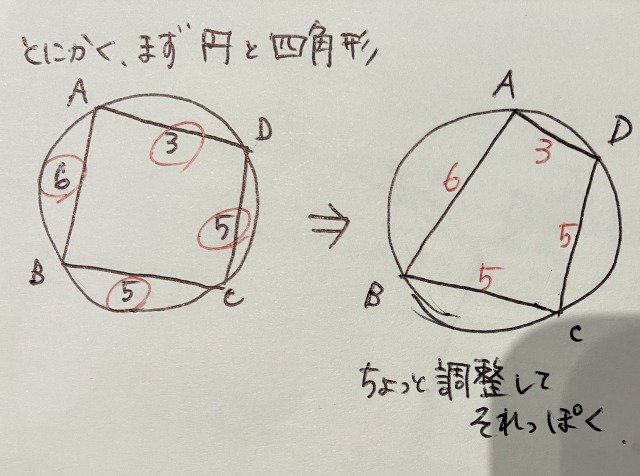 とにかく、まず円と四角形
A
D
3
6
5
B
5
C
⇒
A
D
3
6
5
5
B
C
ちょっと調整して
それっぽく